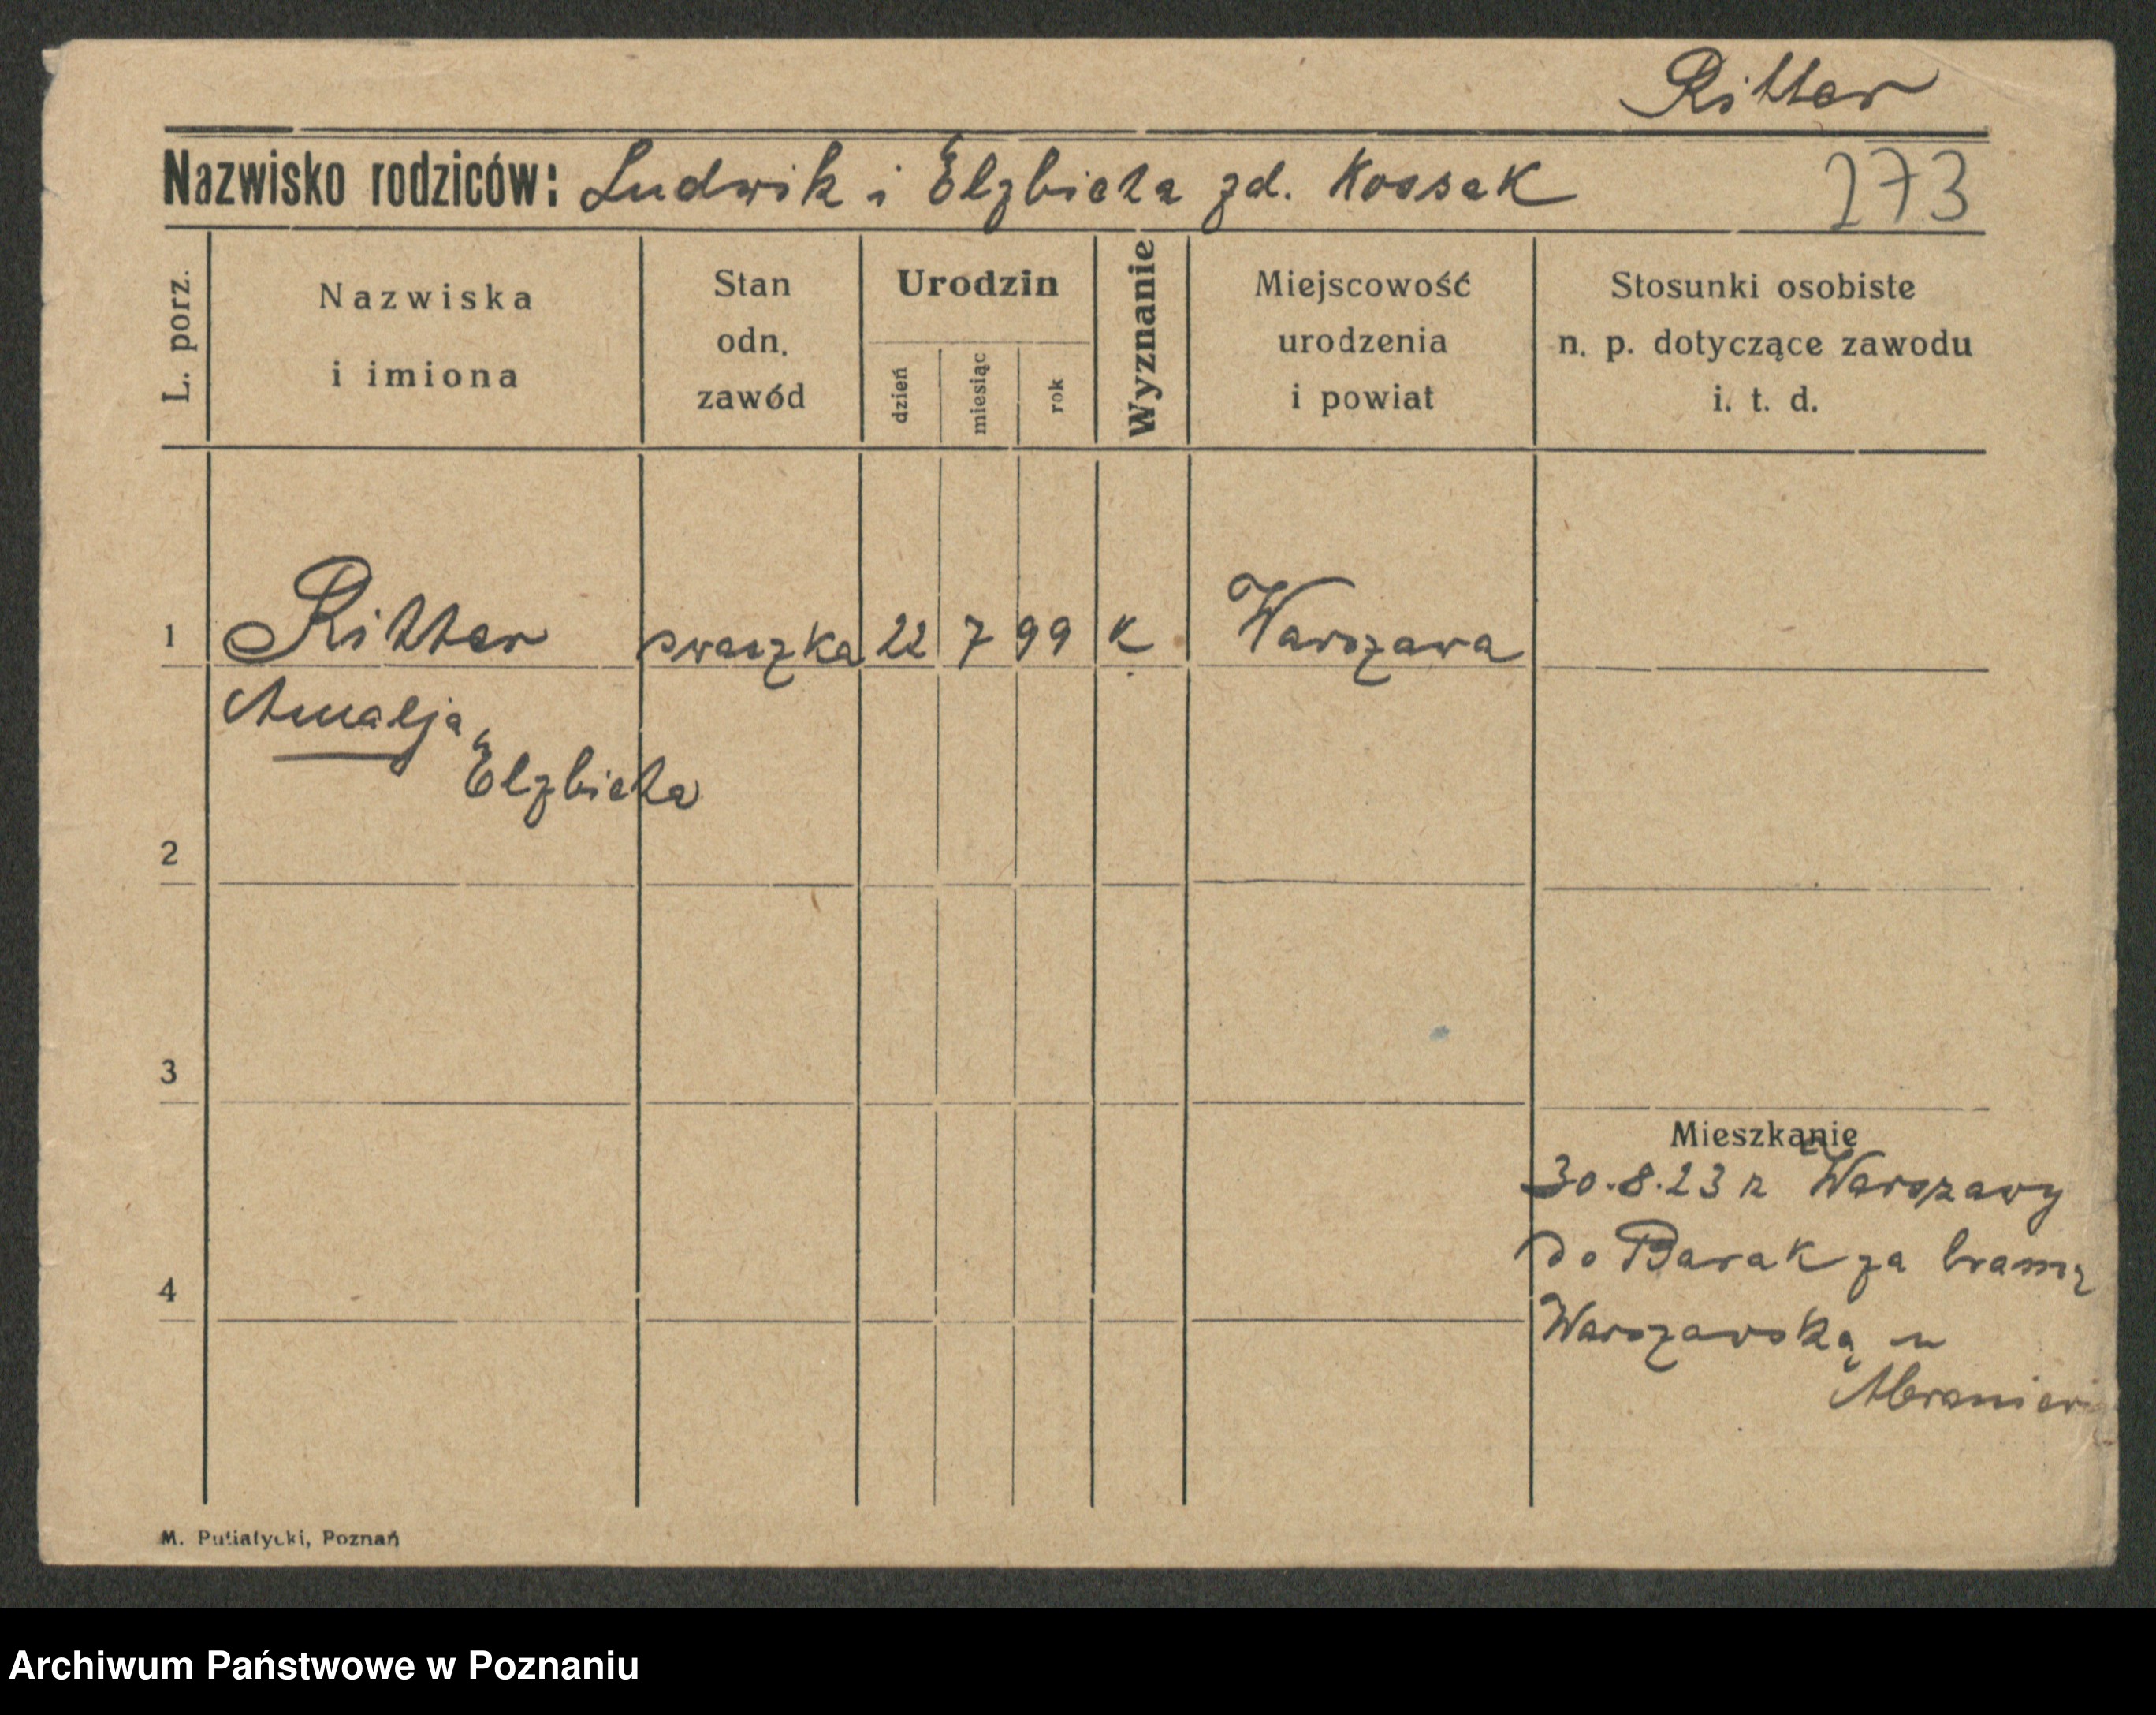 Ritter
Nazwisko rodziców: Ludwik i Elżbieta zd. Kossak 273
L. porz.
Nazwiska
i imiona
Stan
odn.
zawód
Urodzin
dzień
miesiąc
rok
Wyznanie
Miejscowość
urodzenia
i powiat
Stosunki osobiste
n. p. dotyczące zawodu
i. t. d.
1 Ritter swaczka 22 7 99 K Warszawa
Amalja
Elżbieta
2
3
Mieszkanie
30.8.23 z Warszawy
do Barak za bramą
4
Warszawską u
M. Putiatycki, Poznań
Archiwum Państwowe w Poznaniu